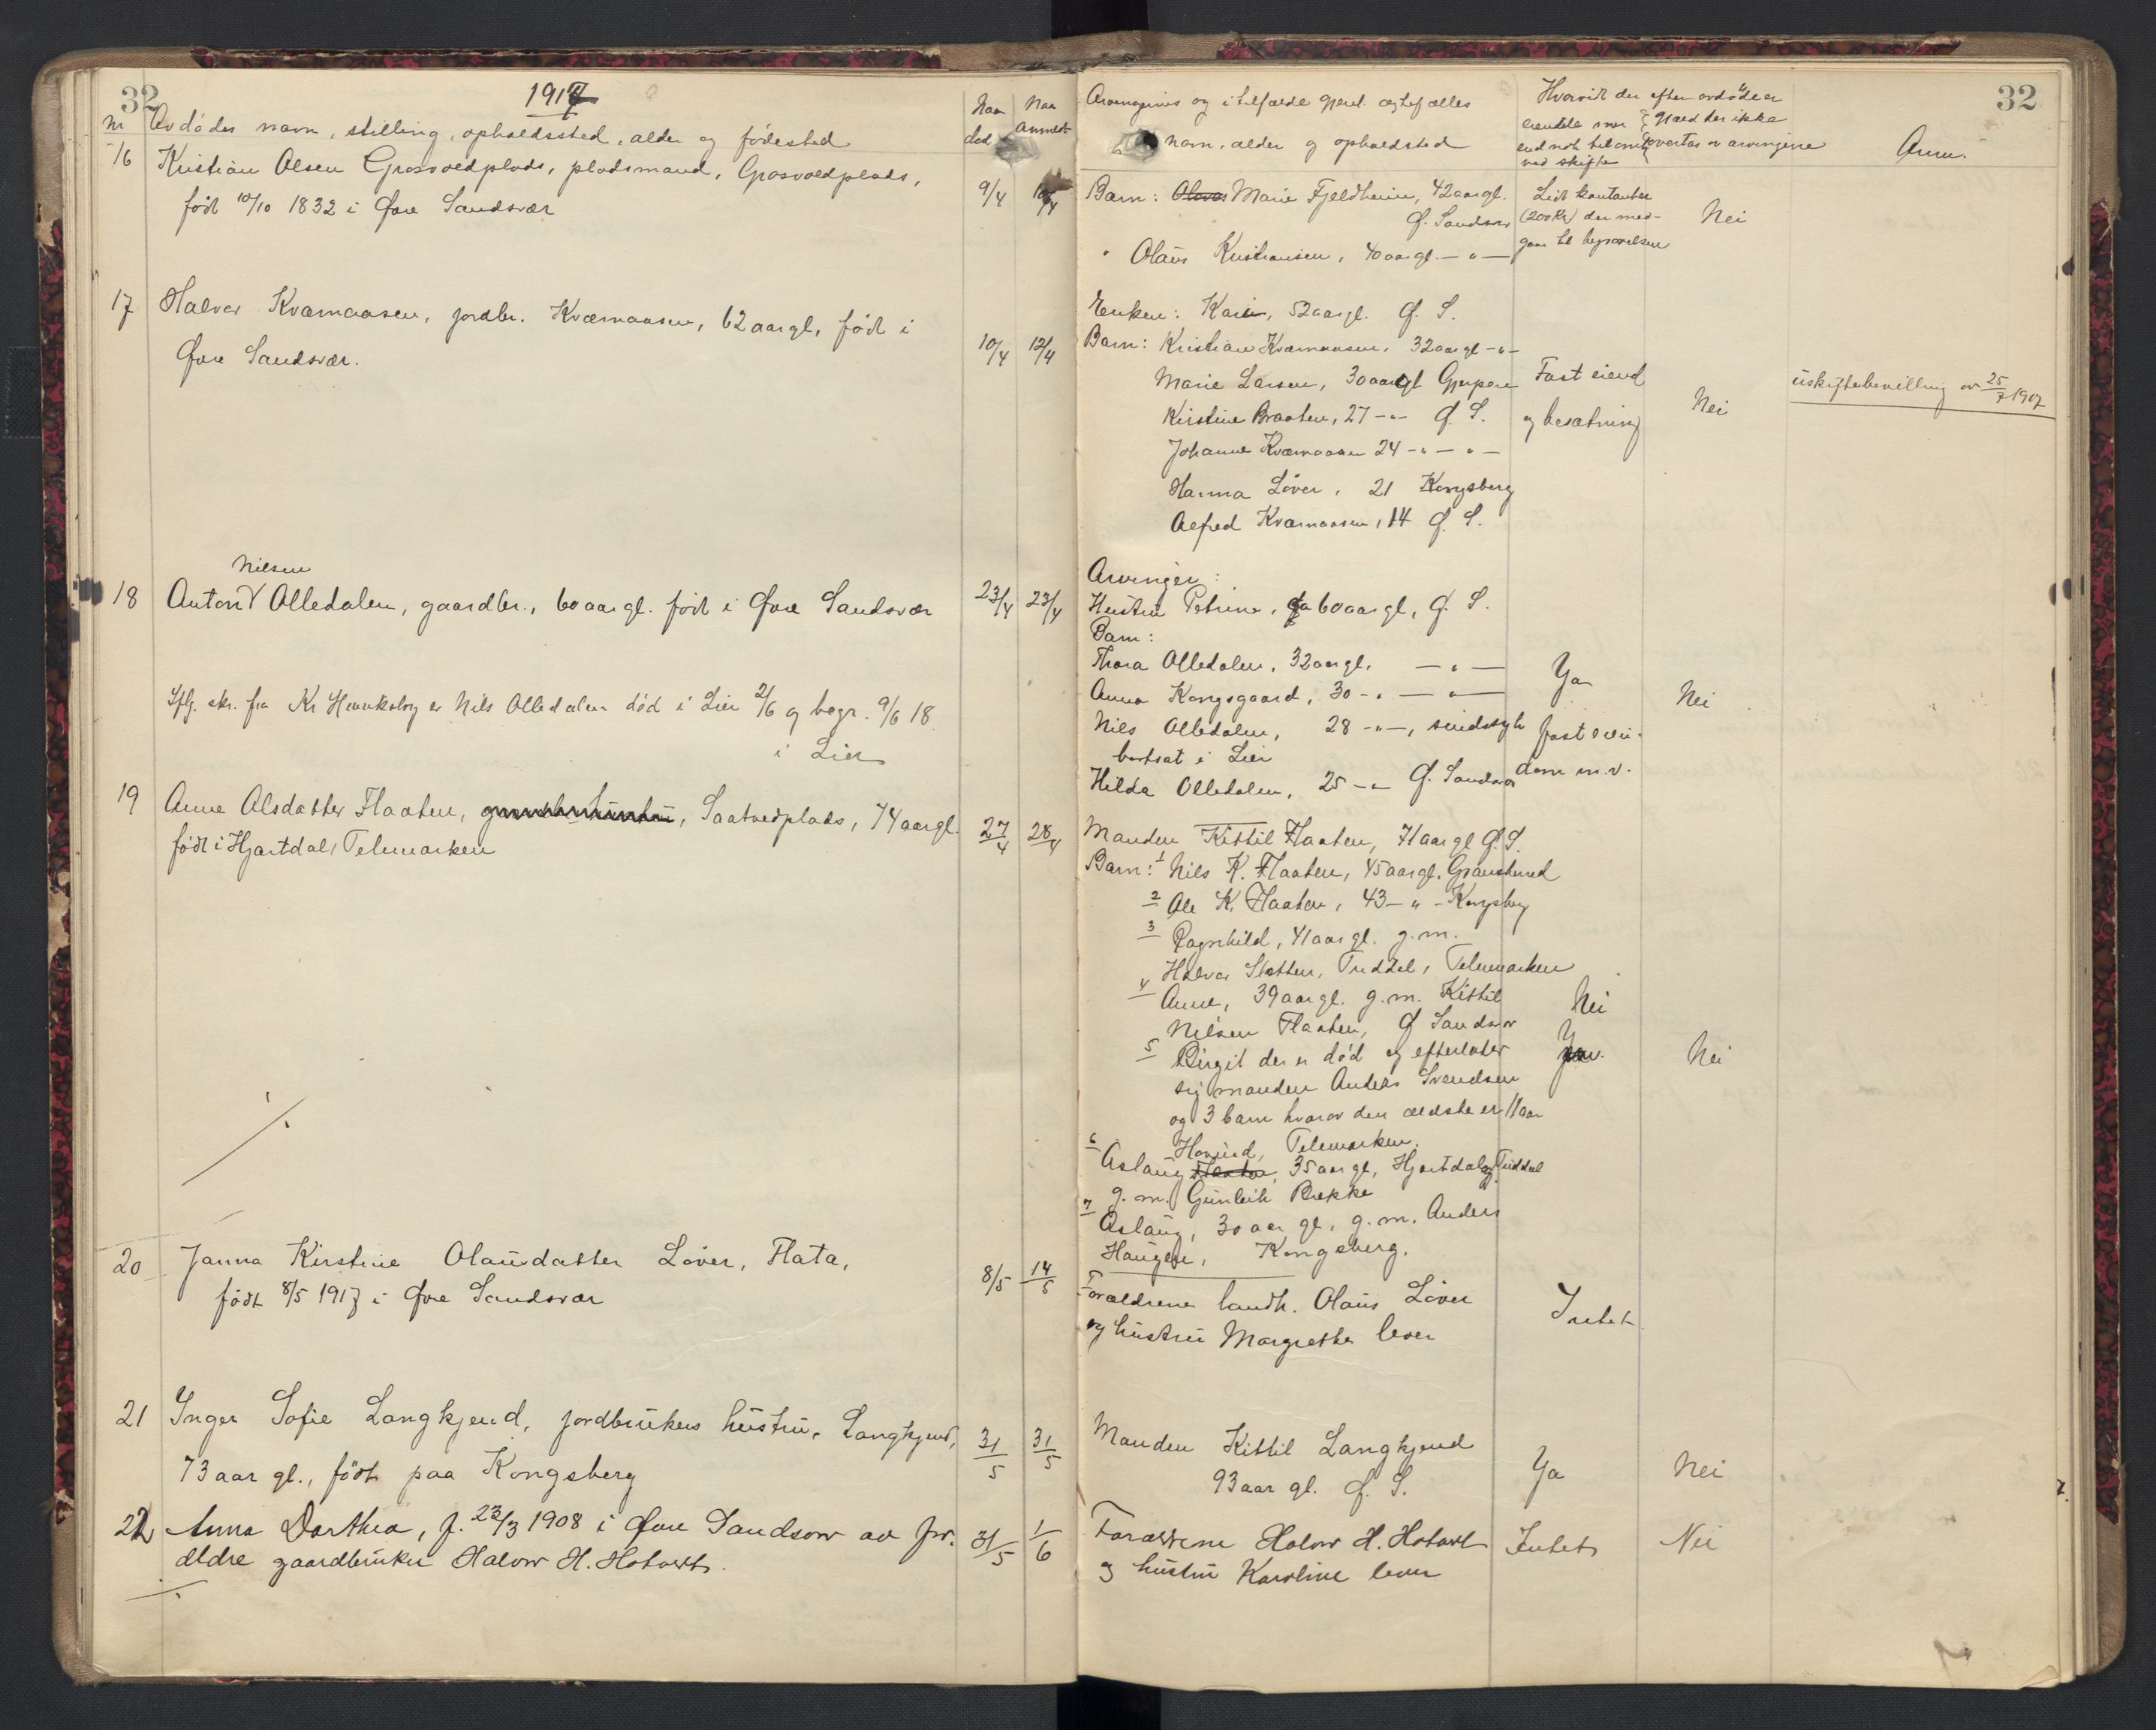 32
1917
Nr
Avdødes navn, stilling, opholdssted, alder og fødested
Naar død
Naar anmeldt
16
Kristian Olsen Grosvoldplads, pladsmand, Grosvoldplads,
født 10/10 1832 i Øvre Sandsvær
9/4
17
Halvor Kværnaasen, jordbr. Kværnaasen, 62 aar gl, født i
Øvre Sandsvær.
10/4 12/4
Nilsen
18
Anton Olledalen, gaardbr., 60 aar gl. født i Øvre Sandsvær
23/4 23/4
Iflg. skr. fra Kr er Nils Olledalen død i Lier 2/6 og begr. 9/6 18
i Lier
19
Anne Olsdatter Flaaten, Saatvedplads, 74 aar gl.
født i Hjartdal, Telemarken
27/4 28/4
20
Janna Kirstine Olausdatter Løver, Flata,
født 8/5 1917 i Øvre Sandsvær
8/5 14/5
21
Inger Sofie Langkjend, jordbrukers hustru, Langkjend,
73 aar gl., født paa Kongsberg
31/5 31/5
22
Anna Dorthea, f. 23/3 1908 i Øvre Sandsvær av for-
ældre gaardbruker Halvor H. Hotvet.
31/5 1/6
32
Arvingernes og i tilfælde gjenl. egtefælles
navn, alder og opholdssted
Hvorvidt der efter avdøde er
eiendele mer
end nok til
ved skifte
gjæld der ikke
overtas av arvingerne
Anm.
Barn: Olaves Marie Fjeldheim, 42 aar gl.
Ø. Sandsvær
" Olaus Kristiansen, 40 aar gl. — " —
Lidt kontanter
(200 Kr) der med-
gaar til begravelsen
Nei
Enken: Karin, 52 aar gl. Ø. S.
Barn: Kristian Kværnaasen, 32 aar gl - " -
Marie Larsen, 30 aar gl Gjerpen
Kirstine Braaten, 27 - " - Ø. S.
Johanne Kværnaasen 24 - " - " -
Hanna Løver, 21 Kongsberg
Alfred Kværnaasen, 14 Ø. S.
Fast eiend
og besætning
Nei
uskiftebevilling av 25/7 1907
Arvinger:
Hustru Petrine, 60 aar gl, Ø. S.
Barn:
Thora Olledalen, 32 aar gl. — " —
Anna Kongsgaard, 30 - " — " —
Nils Olledalen, 28 - " -, sindssyk
bortsat i Lier
Hilda Olledalen, 25 - " Ø. Sandsvær
Ja
fast eien-
dom m.v.
Nei
Manden Kittil Flaaten, 71 aar gl Ø. S.
Barn: 1 Nils K. Flaaten, 45 aar gl. Gransherred
2 Ole K. Flaaten, 43 - " - Kongsberg
3 Ragnhild, 41 aar gl. g. m.
Halvor Sletten, Tuddal, Telemarken
4 Anne, 39 aar gl. g. m. Kittil
Nilsen Flaaten, Ø Sandsvær
5 Birgit der er død og efterlater
sig manden Anders Svendsen
og 3 barn hvorav den ældste er 11 aar
Hovind, Telemarken.
6 Aslaug Flaaten, 35 aar gl, Hjartdal og Tuddal
g. m. Gunleik Bekke
7 Aslaug, 30 aar gl, g. m. Anders
Haugen, Kongsberg.
Nei
Nei
Forældrene landh. Olaus Løver
og hustru Margrethe lever
Intet
Manden Kittil Langkjend
93 aar gl. Ø. S.
Ja
Nei
Forældrene Halvor H. Hotvet
og hustru Karoline lever
Intet
Nei